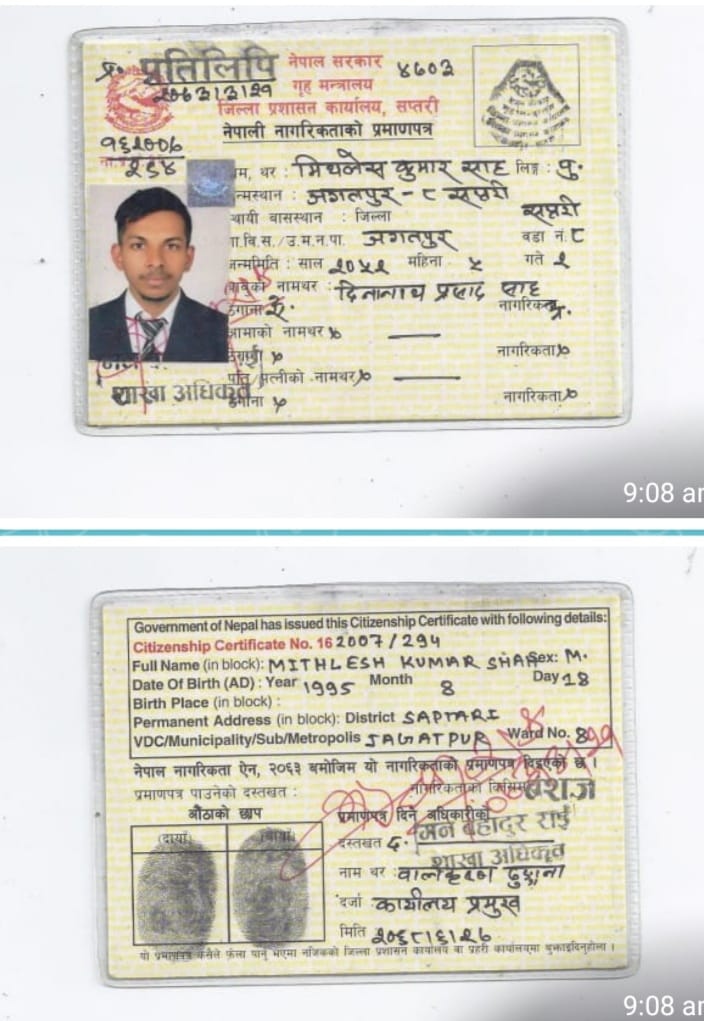 प्र. प्रतिलिपि
नेपाल सरकार ४६०३
२०७३।३।२९
गृह मन्त्रालय
जिल्ला प्रशासन कार्यालय, सप्तरी
नेपाली नागरिकताको प्रमाणपत्र
१६२००७
२९४
नाम, थर : मिथलेस कुमार साह लिङ्ग : पु.
जन्मस्थान : जगतपुर - ८ सप्तरी
स्थायी बासस्थान : जिल्ला सप्तरी
गा.वि.स./उ.म.न.पा. जगतपुर वडा नं. ८
जन्ममिति : साल २०५२ महिना ५ गते २
बाबुको नामथर : दिनानाथ प्रसाद साह
ठेगाना ऐ. नागरिकता
आमाको नामथर × —
ठेगाना × नागरिकता ×
पति/पत्नीको नामथर × —
ठेगाना × नागरिकता ×
शाखा अधिकृत
9:08 am
Government of Nepal has issued this Citizenship Certificate with following details:
Citizenship Certificate No. 162007/294
Full Name (in block): MITHLESH KUMAR SHAH Sex: M.
Date Of Birth (AD) : Year 1995 Month 8 Day 18
Birth Place (in block) :
Permanent Address (in block): District SAPTARI
VDC/Municipality/Sub/Metropolis JAGATPUR Ward No. 8
नेपाल नागरिकता ऐन, २०६३ बमोजिम यो नागरिकताको प्रमाणपत्र दिइएको छ ।
प्रमाणपत्र पाउनेको दस्तखत : नागरिकताको किसिम वंशज
औंठाको छाप प्रमाणपत्र दिने अधिकारीको
मन बहादुर राई
(दायाँ) (बायाँ) दस्तखत द.
शाखा अधिकृत
नाम थर : वालकृष्ण ढुङ्गाना
दर्जा : कार्यालय प्रमुख
मिति २०६८।६।२७
यो प्रमाणपत्र कसैले फेला पारे भएमा नजिकको जिल्ला प्रशासन कार्यालय वा प्रहरी कार्यालयमा बुझाइदिनुहोला ।
9:08 am